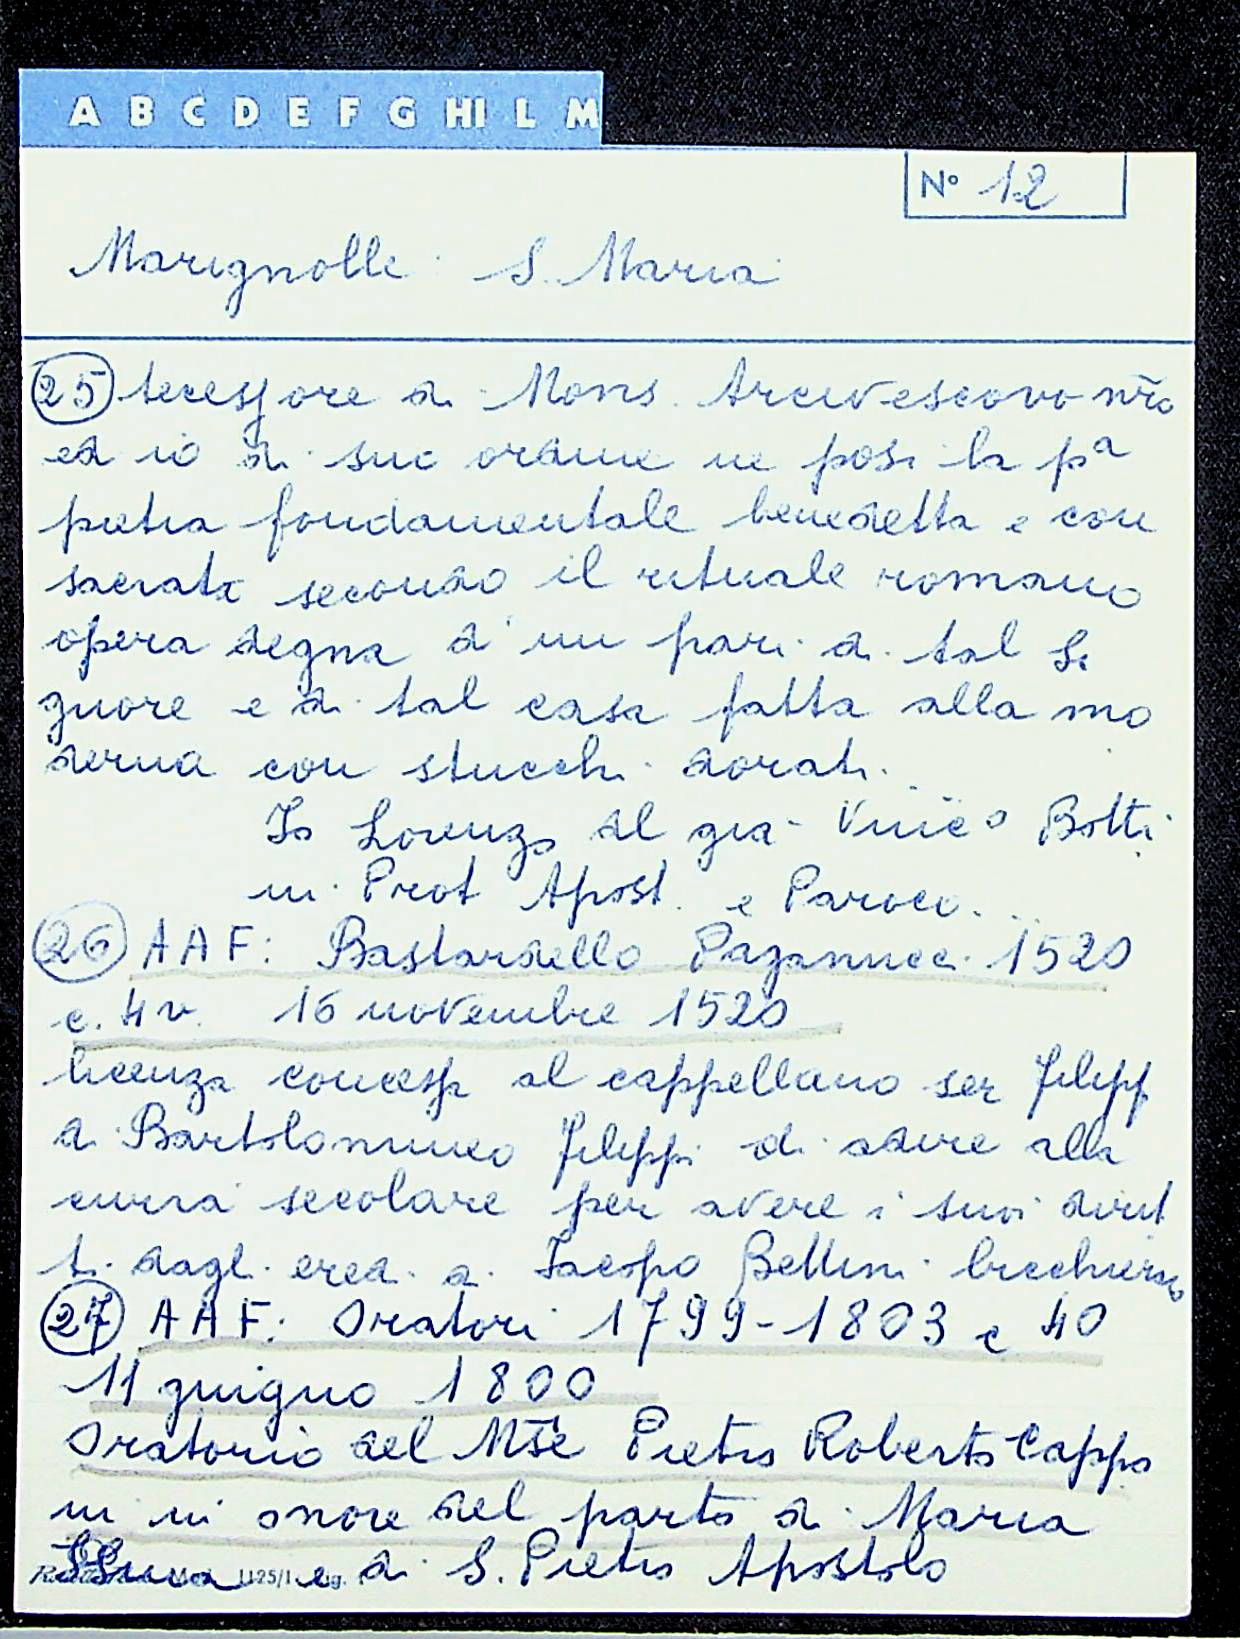 A B C D E F G HI L M
N° 12
Marignolle S. Maria
25 tecessore di Mons. Arcivescovo nro
ed io di suo ordine ne posi la pa
pietra fondamentale benedetta e con
sacrata secondo il rituale romano
opera degna d'un pari di tal Si
gnore e di tal casa fatta alla mo
derna con stucchi dorati.
Io Lorenzo del già Vinc° Botti
ni Prot Apost. e Paroco.
26 AAF: Bastardello Paganucci 1520
c. 4v. 16 novembre 1520
licenza concessa al cappellano ser Filipp
di Bartolommeo Filippi di adire alla
curia secolare per avere i suoi dirit
ti dagli eredi di Jacopo Bettini bicchieraio
27 AAF: Oratori 1799-1803 c 40
11 giugno 1800
Oratorio del Mse Pietro Roberto Cappo
ni in onore del parto di Maria
SSma e di S. Pietro Apostolo
1125/1